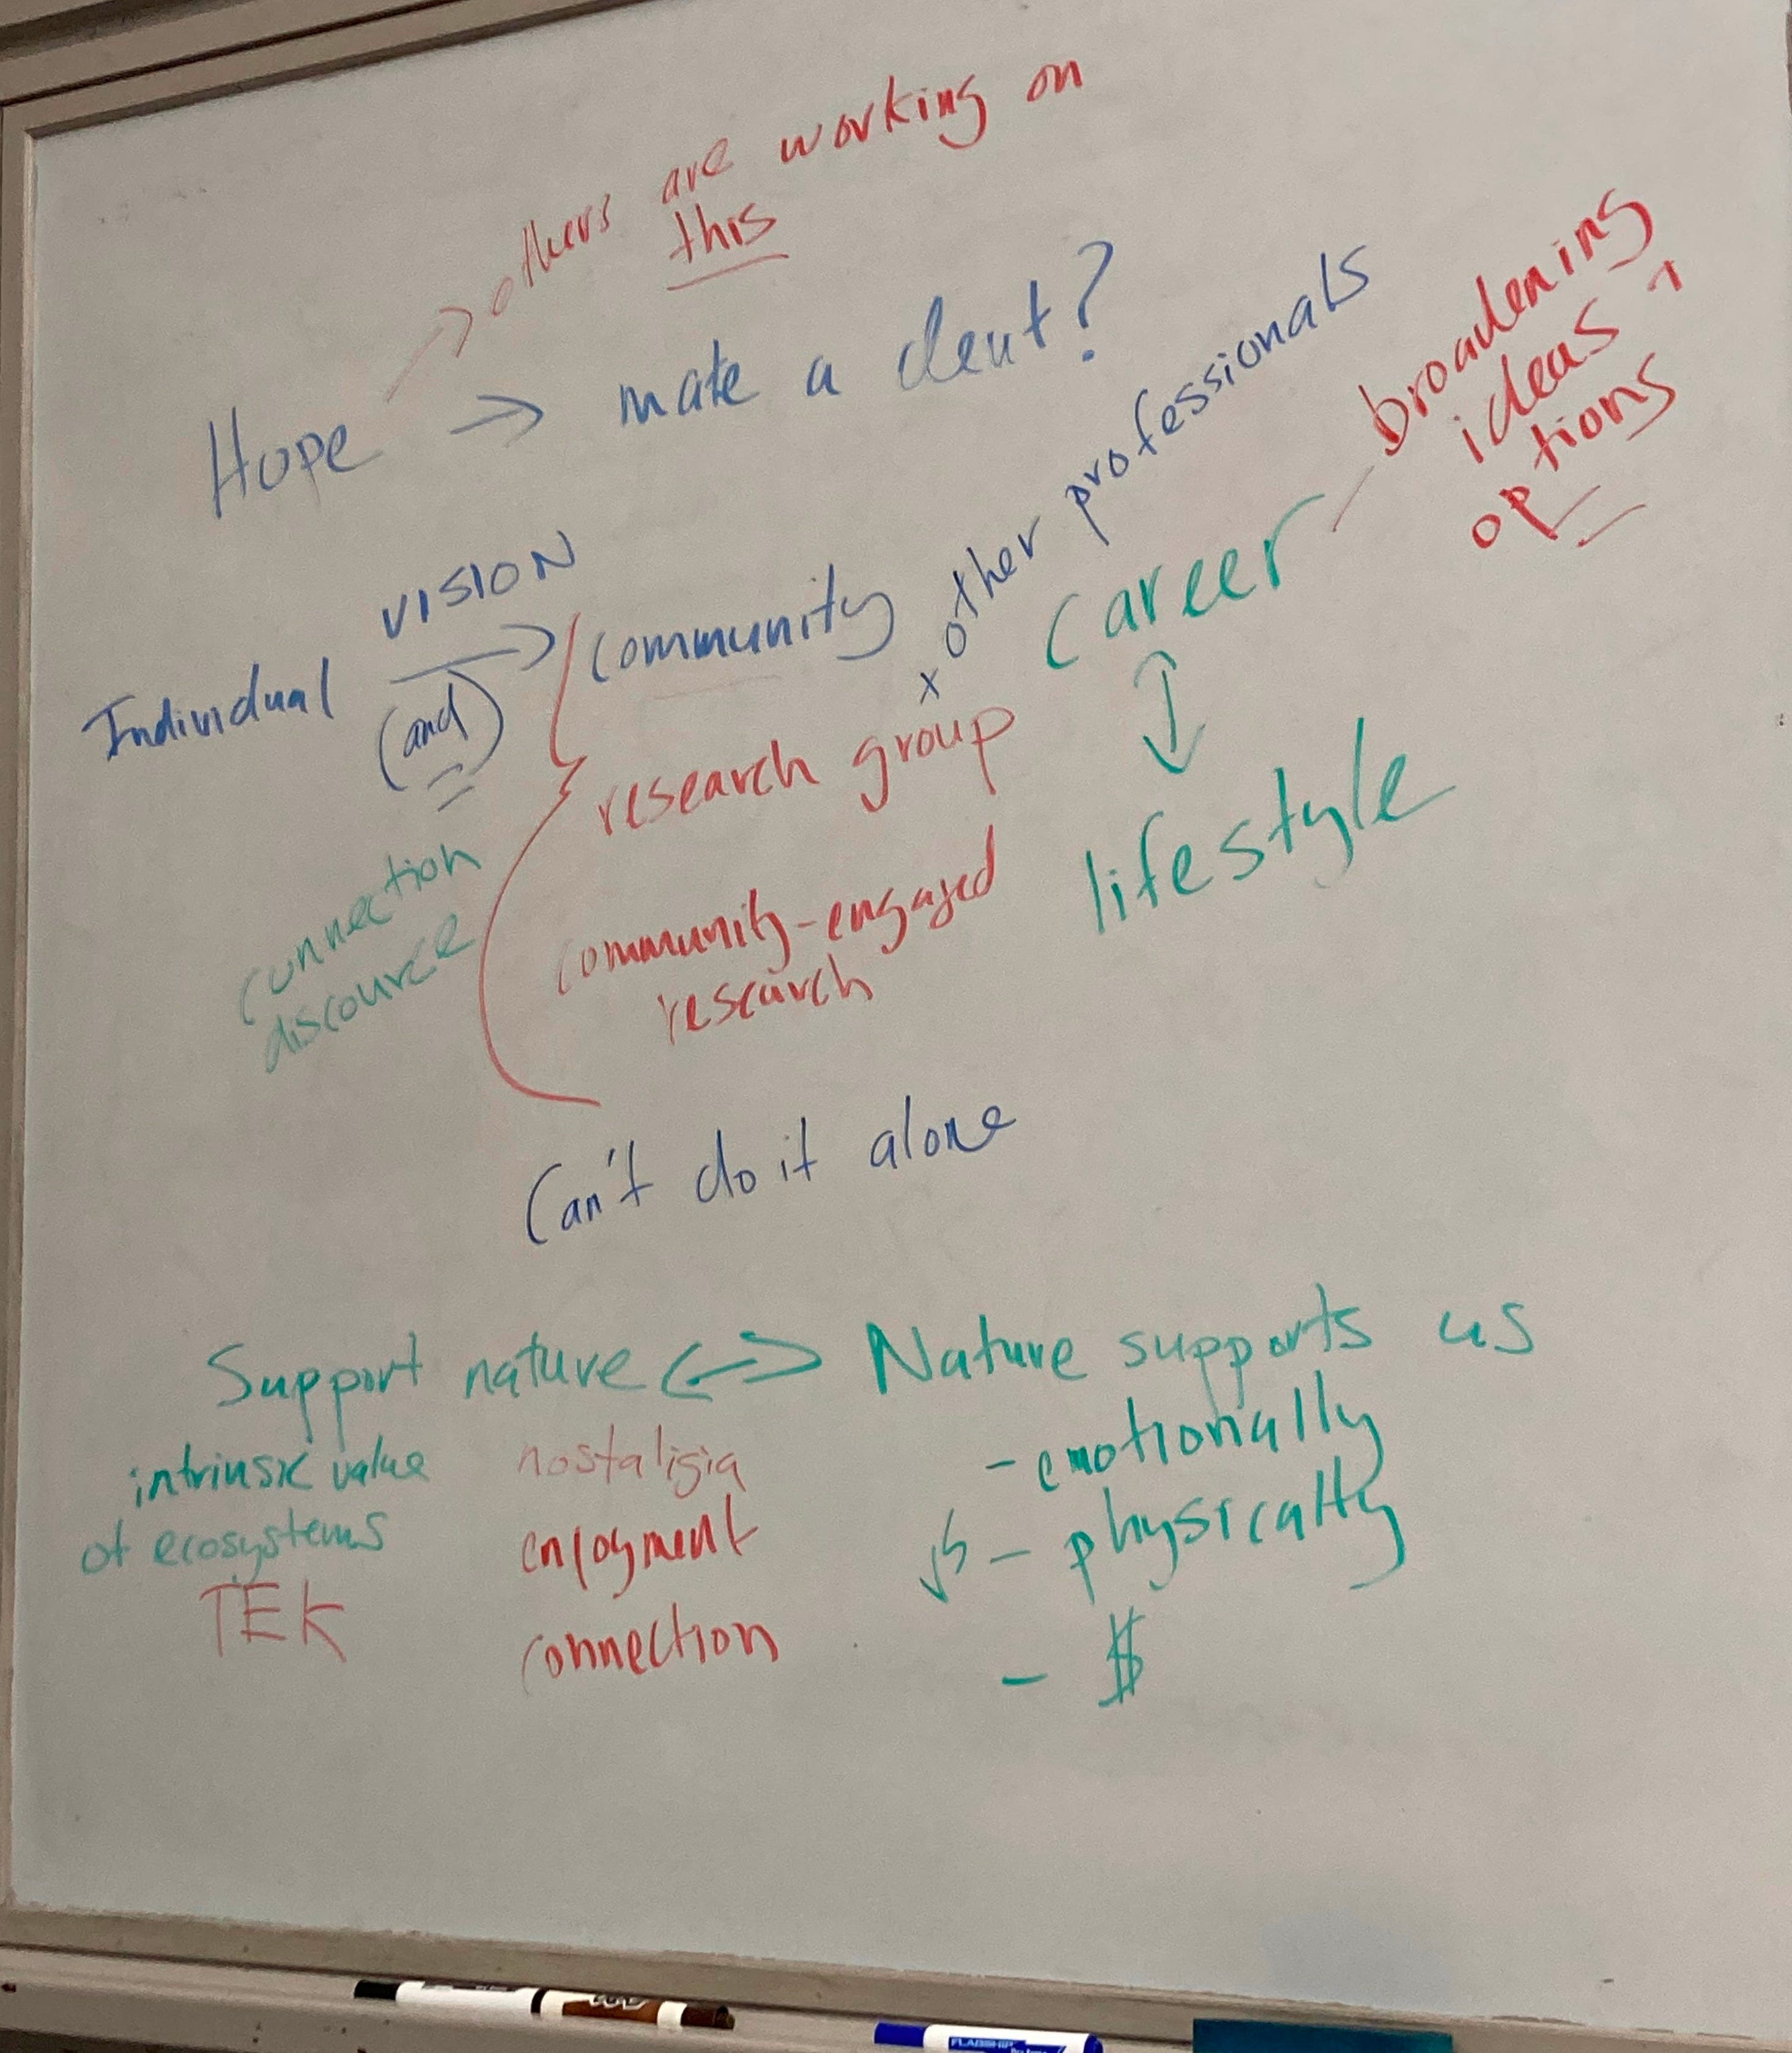 others are working on
this
Hope → make a dent?
broadening
ideas,
options
VISION
Individual → community
(and)
x other professionals
career
↕
lifestyle
research group
connection
discource
community-engaged
research
Can't do it alone
Support nature ↔ Nature supports us
intrinsic value
of ecosystems
TEK
nostaligia
enjoyment
connection
- emotionally
- physically
- $
FLAGSHIP